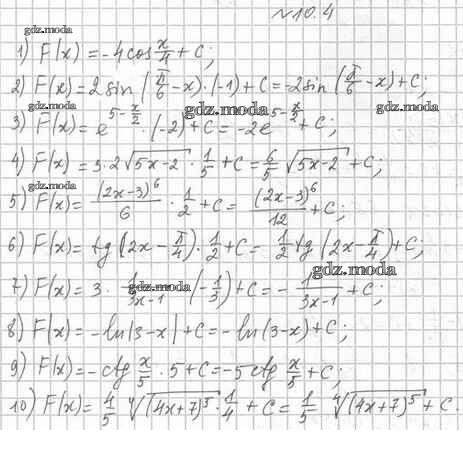 №10.4
gdz.moda
1) F(x) = -4cos x/4 + C;
2) F(x) = 2sin(π/6 - x)·(-1) + C = -2sin(π/6 - x) + C;
gdz.moda gdz.moda gdz.moda
3) F(x) = e^(5 - x/2) · (-2) + C = -2e^(5 - x/2) + C;
4) F(x) = 3·2√(5x-2) · 1/5 + C = 6/5 √(5x-2) + C;
gdz.moda
5) F(x) = (2x-3)^6/6 · 1/2 + C = (2x-3)^6/12 + C;
6) F(x) = tg(2x - π/4)·1/2 + C = 1/2 tg(2x - π/4) + C;
gdz.moda
7) F(x) = 3 · 1/(3x-1) · (-1/3) + C = - 1/(3x-1) + C;
gdz.moda
8) F(x) = -ln|3-x| + C = -ln(3-x) + C;
9) F(x) = -ctg x/5 · 5 + C = -5ctg x/5 + C;
gdz.moda
10) F(x) = 4/5 ∜((4x+7)^5) · 1/4 + C = 1/5 ∜((4x+7)^5) + C.